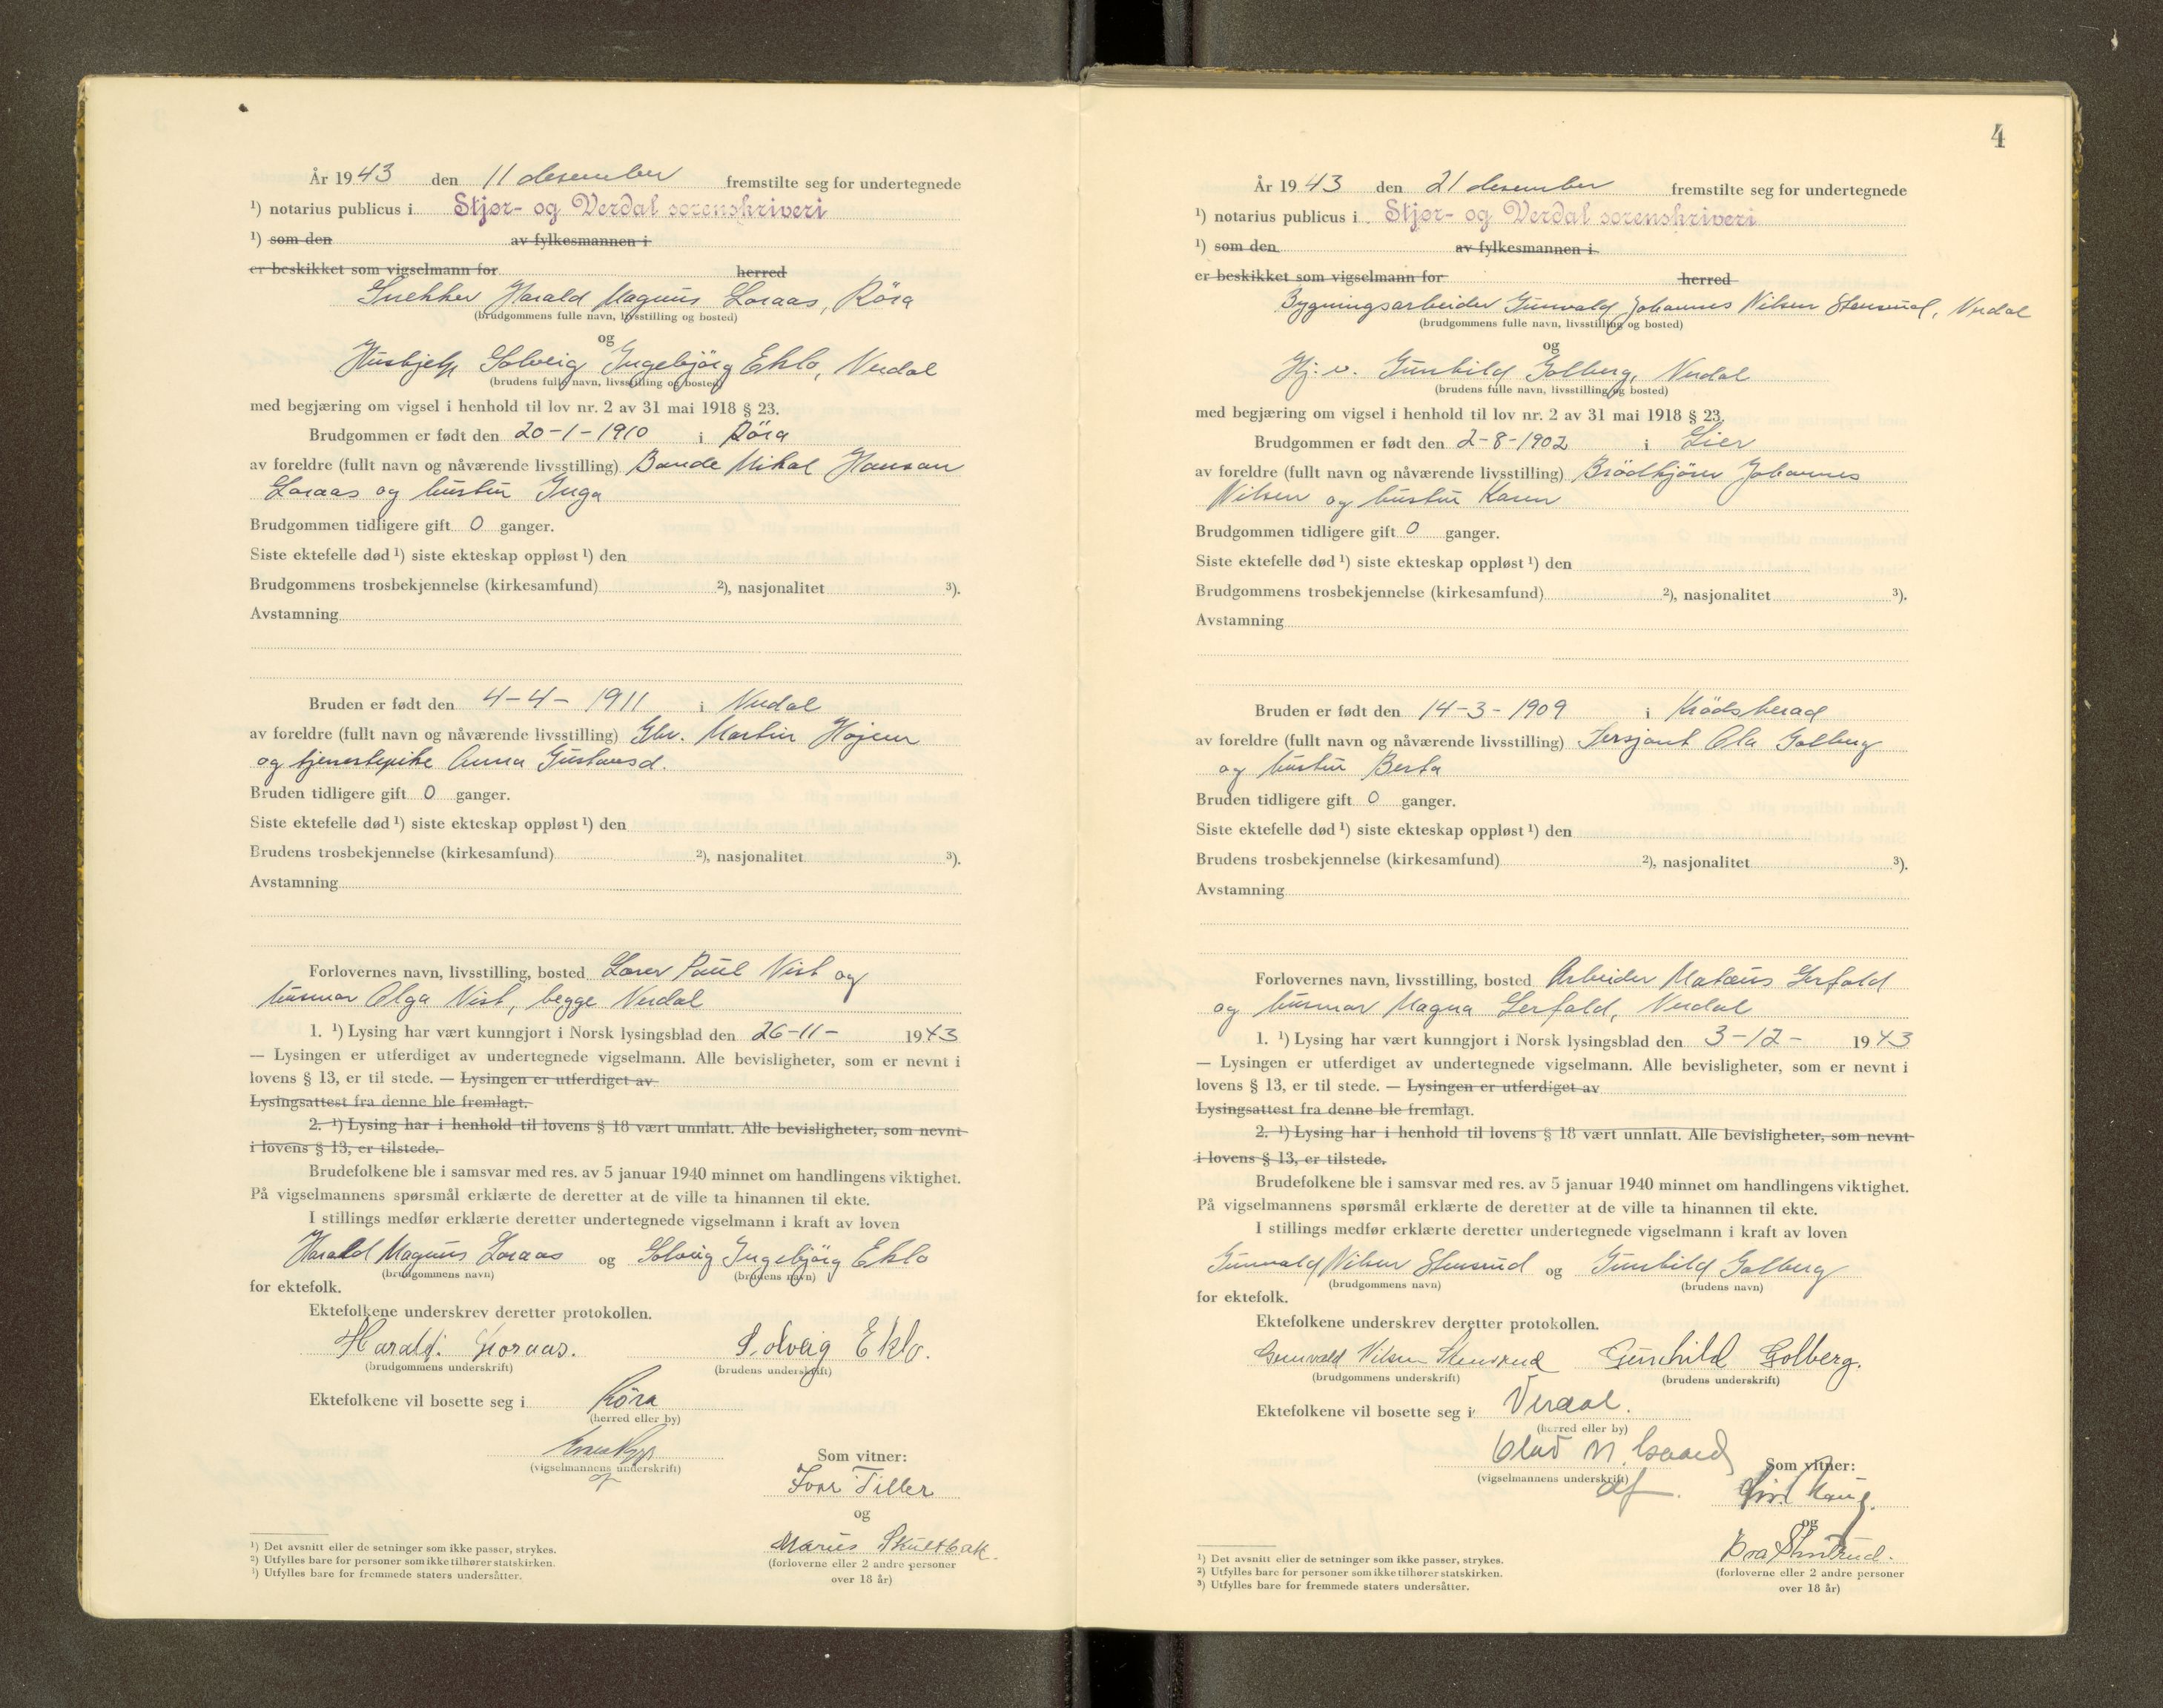 År 1943 den 11 desember fremstilte seg for undertegnede
¹) notarius publicus i Stjør- og Verdal sorenskriveri
¹) som den av fylkesmannen i
er beskikket som vigselmann for herred
Snekker Harald Magnus Loraas, Röra
(brudgommens fulle navn, livsstilling og bosted)
og
Hushjelp Solveig Ingebjörg Eklo, Verdal
(brudens fulle navn, livsstilling og bosted)
med begjæring om vigsel i henhold til lov nr. 2 av 31 mai 1918 § 23.
Brudgommen er født den 20-1-1910 i Röra
av foreldre (fullt navn og nåværende livsstilling) Bonde Mikal Hansen
Loraas og hustru Inga
Brudgommen tidligere gift 0 ganger.
Siste ektefelle død ¹) siste ekteskap oppløst ¹) den
Brudgommens trosbekjennelse (kirkesamfund) ²), nasjonalitet ³).
Avstamning
Bruden er født den 4-4-1911 i Verdal
av foreldre (fullt navn og nåværende livsstilling) Gbr. Martin Højem
og tjenestepike Anna Gustavsd.
Bruden tidligere gift 0 ganger.
Siste ektefelle død ¹) siste ekteskap oppløst ¹) den
Brudens trosbekjennelse (kirkesamfund) ²), nasjonalitet ³).
Avstamning
Forlovernes navn, livsstilling, bosted Lærer Paul Vist og
husmor Olga Vist, begge Verdal
1. ¹) Lysing har vært kunngjort i Norsk lysingsblad den 26-11- 1943
— Lysingen er utferdiget av undertegnede vigselmann. Alle bevisligheter, som er nevnt i
lovens § 13, er til stede. — Lysingen er utferdiget av
Lysingsattest fra denne ble fremlagt.
2. ¹) Lysing har i henhold til lovens § 18 vært unnlatt. Alle bevisligheter, som nevnt
i lovens § 13, er tilstede.
Brudefolkene ble i samsvar med res. av 5 januar 1940 minnet om handlingens viktighet.
På vigselmannens spørsmål erklærte de deretter at de ville ta hinannen til ekte.
I stillings medfør erklærte deretter undertegnede vigselmann i kraft av loven
Harald Magnus Loraas og Solveig Ingebjörg Eklo
(brudgommens navn) (brudens navn)
for ektefolk.
Ektefolkene underskrev deretter protokollen.
Harald Loraas. Solveig Eklo.
(brudgommens underskrift) (brudens underskrift)
Ektefolkene vil bosette seg i Röra
(herred eller by)
(vigselmannens underskrift)
Som vitner:
Ivar Tiller
og
Marius Skultbak.
(forloverne eller 2 andre personer
over 18 år)
¹) Det avsnitt eller de setninger som ikke passer, strykes.
²) Utfylles bare for personer som ikke tilhører statskirken.
¹) Utfylles bare for fremmede staters undersåtter.
4
År 1943 den 21 desember fremstilte seg for undertegnede
¹) notarius publicus i Stjør- og Verdal sorenskriveri
¹) som den av fylkesmannen i
er beskikket som vigselmann for herred
Bygningsarbeider Gunvald Johannes Nilsen Stensrud, Verdal
(brudgommens fulle navn, livsstilling og bosted)
og
Hj. v. Gunhild Golberg, Verdal
(brudens fulle navn, livsstilling og bosted)
med begjæring om vigsel i henhold til lov nr. 2 av 31 mai 1918 § 23.
Brudgommen er født den 2-8-1902 i Lier
av foreldre (fullt navn og nåværende livsstilling) Brödkjörer Johannes
Nilsen og hustru Karen
Brudgommen tidligere gift 0 ganger.
Siste ektefelle død ¹) siste ekteskap oppløst ¹) den
Brudgommens trosbekjennelse (kirkesamfund) ²), nasjonalitet ³).
Avstamning
Bruden er født den 14-3-1909 i Krödsherad
av foreldre (fullt navn og nåværende livsstilling) Sersjant Ola Golberg
og hustru Berta
Bruden tidligere gift 0 ganger.
Siste ektefelle død ¹) siste ekteskap oppløst ¹) den
Brudens trosbekjennelse (kirkesamfund) ²), nasjonalitet ³).
Avstamning
Forlovernes navn, livsstilling, bosted Arbeider Mateus Lerfald
og husmor Magna Lerfald, Verdal
1. ¹) Lysing har vært kunngjort i Norsk lysingsblad den 3-12- 1943
— Lysingen er utferdiget av undertegnede vigselmann. Alle bevisligheter, som er nevnt i
lovens § 13, er til stede. — Lysingen er utferdiget av
Lysingsattest fra denne ble fremlagt.
2. ¹) Lysing har i henhold til lovens § 18 vært unnlatt. Alle bevisligheter, som nevnt
i lovens § 13, er tilstede.
Brudefolkene ble i samsvar med res. av 5 januar 1940 minnet om handlingens viktighet.
På vigselmannens spørsmål erklærte de deretter at de ville ta hinannen til ekte.
I stillings medfør erklærte deretter undertegnede vigselmann i kraft av loven
Gunvald Nilsen Stensrud og Gunhild Golberg
(brudgommens navn) (brudens navn)
for ektefolk.
Ektefolkene underskrev deretter protokollen.
Gunvald Nilsen Stensrud Gunhild Golberg.
(brudgommens underskrift) (brudens underskrift)
Ektefolkene vil bosette seg i Verdal.
(herred eller by)
Olav M.
(vigselmannens underskrift)
Som vitner:
og
(forloverne eller 2 andre personer
over 18 år)
¹) Det avsnitt eller de setninger som ikke passer, strykes.
²) Utfylles bare for personer som ikke tilhører statskirken.
³) Utfylles bare for fremmede staters undersåtter.